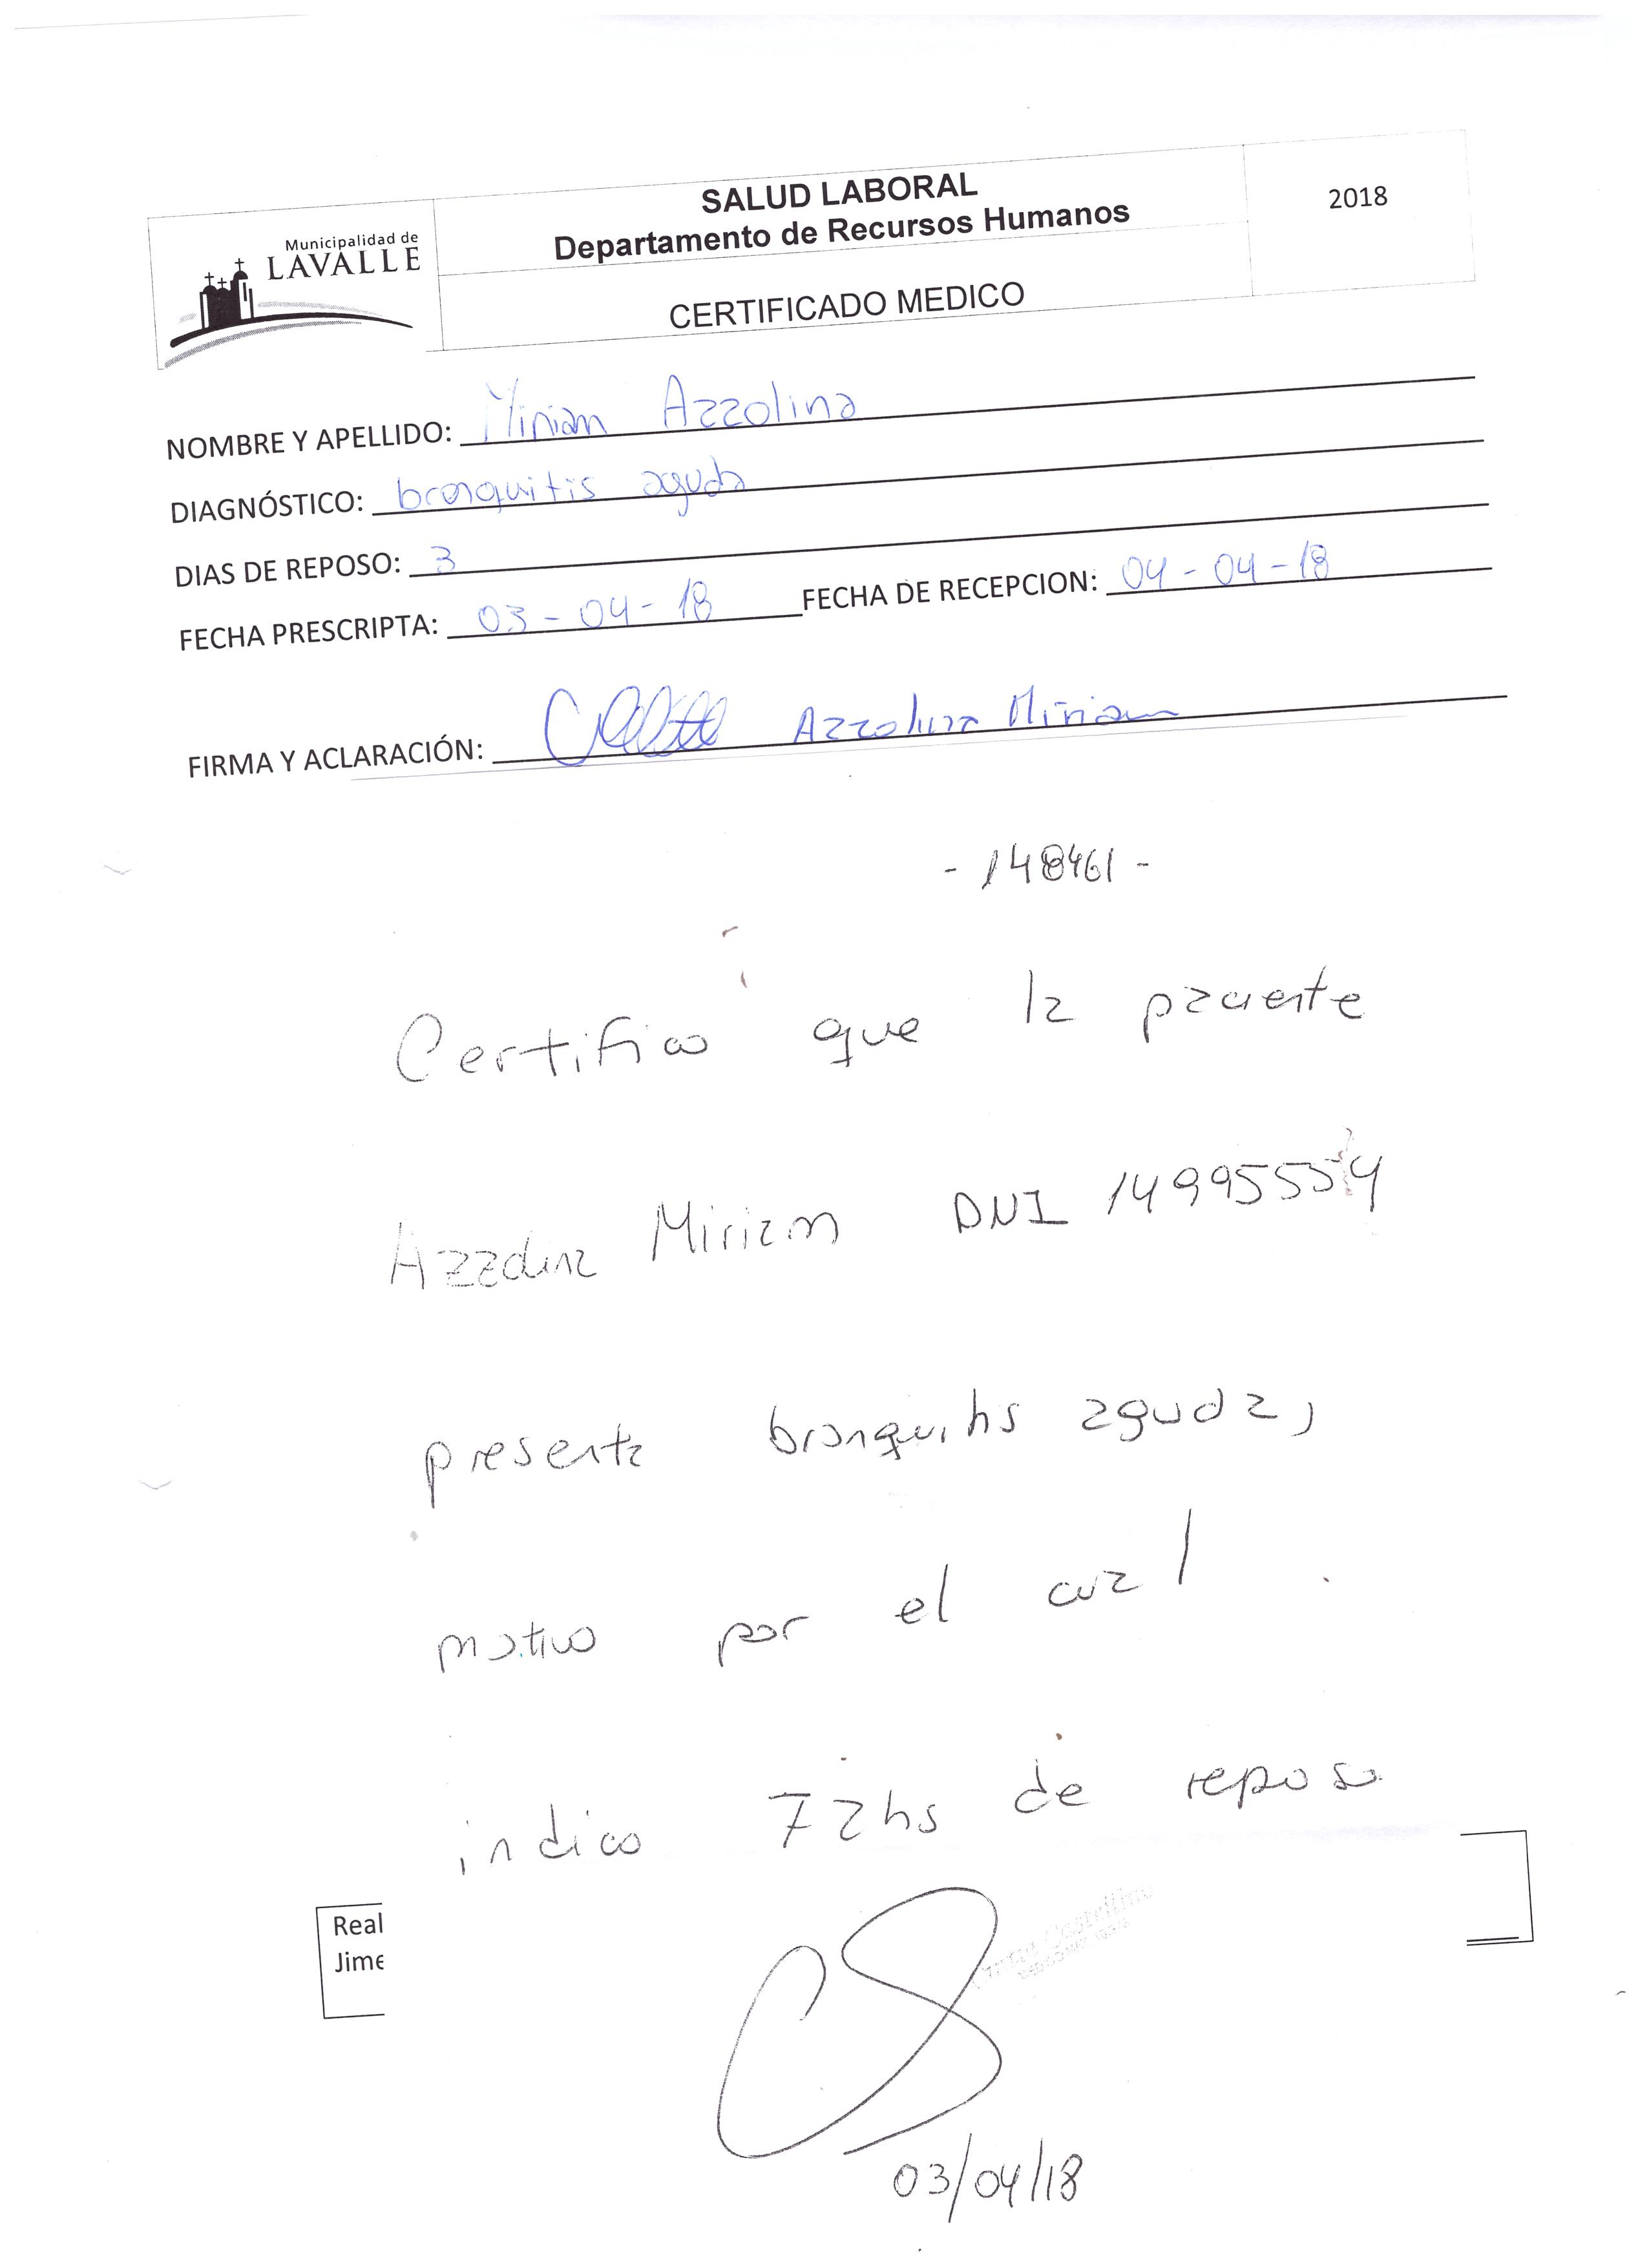 Municipalidad de
LAVALLE
SALUD LABORAL
Departamento de Recursos Humanos
CERTIFICADO MEDICO
2018
NOMBRE Y APELLIDO: Miriam Azzolina
DIAGNÓSTICO: bronquitis aguda
DIAS DE REPOSO: 3
FECHA PRESCRIPTA: 03-04-18 FECHA DE RECEPCION: 04-04-18
FIRMA Y ACLARACIÓN: Azzolina Miriam
- 148461 -
Certifico que la paciente
Azzolina Miriam DNI 14995554
presenta bronquitis aguda,
motivo por el cual
indico 72hs de reposo
Real
Jime
03/04/18